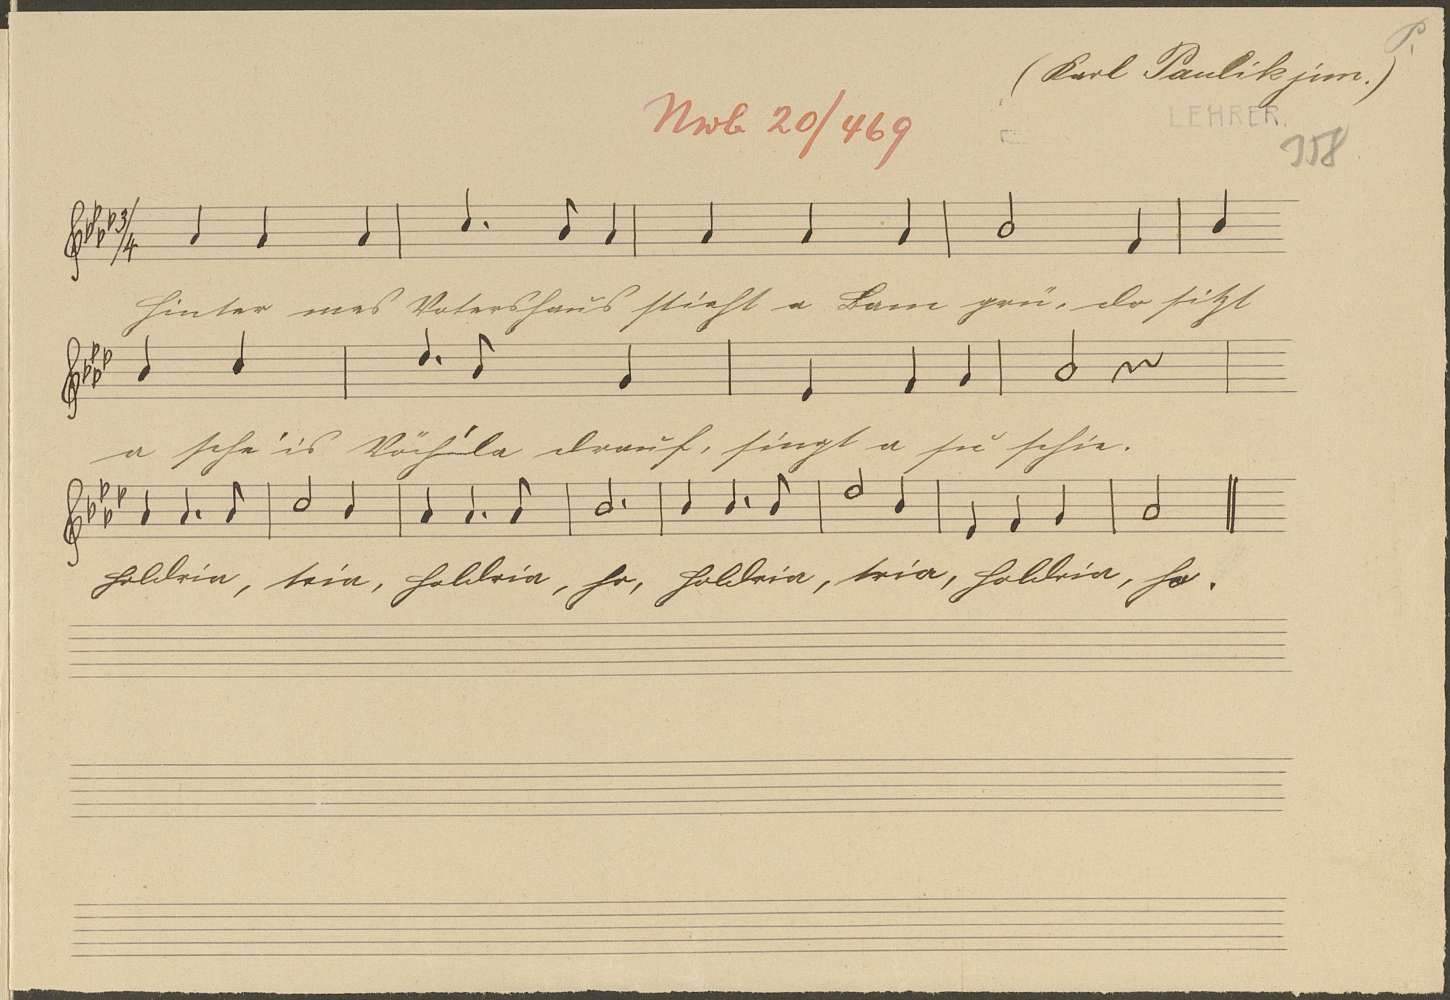 P.
(Karl Paulik jun.)
Nrb 20/469
LEHRER.
358
3/4
Hinter mes Votershaus stieht a Bam grü, do sitzt
a sche'is Vöch'la drauf, singt a su schie.
Holdria, tria, holdria, ho, holdria, tria, holdria, ho.